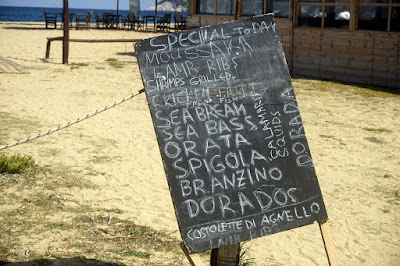 SPECIAL TODAY
MOUSSAKA
LAMB RIBS
SHRIMPS GRILLED
CHICKEN FILET
SEA BREAM
SEA BASS
ORATA
SPIGOLA
BRANZINO
DORADOS
COSTOLETTE DI AGNELLO
LAMB RIBS
CALAMARY
SQUIDS
DORADA